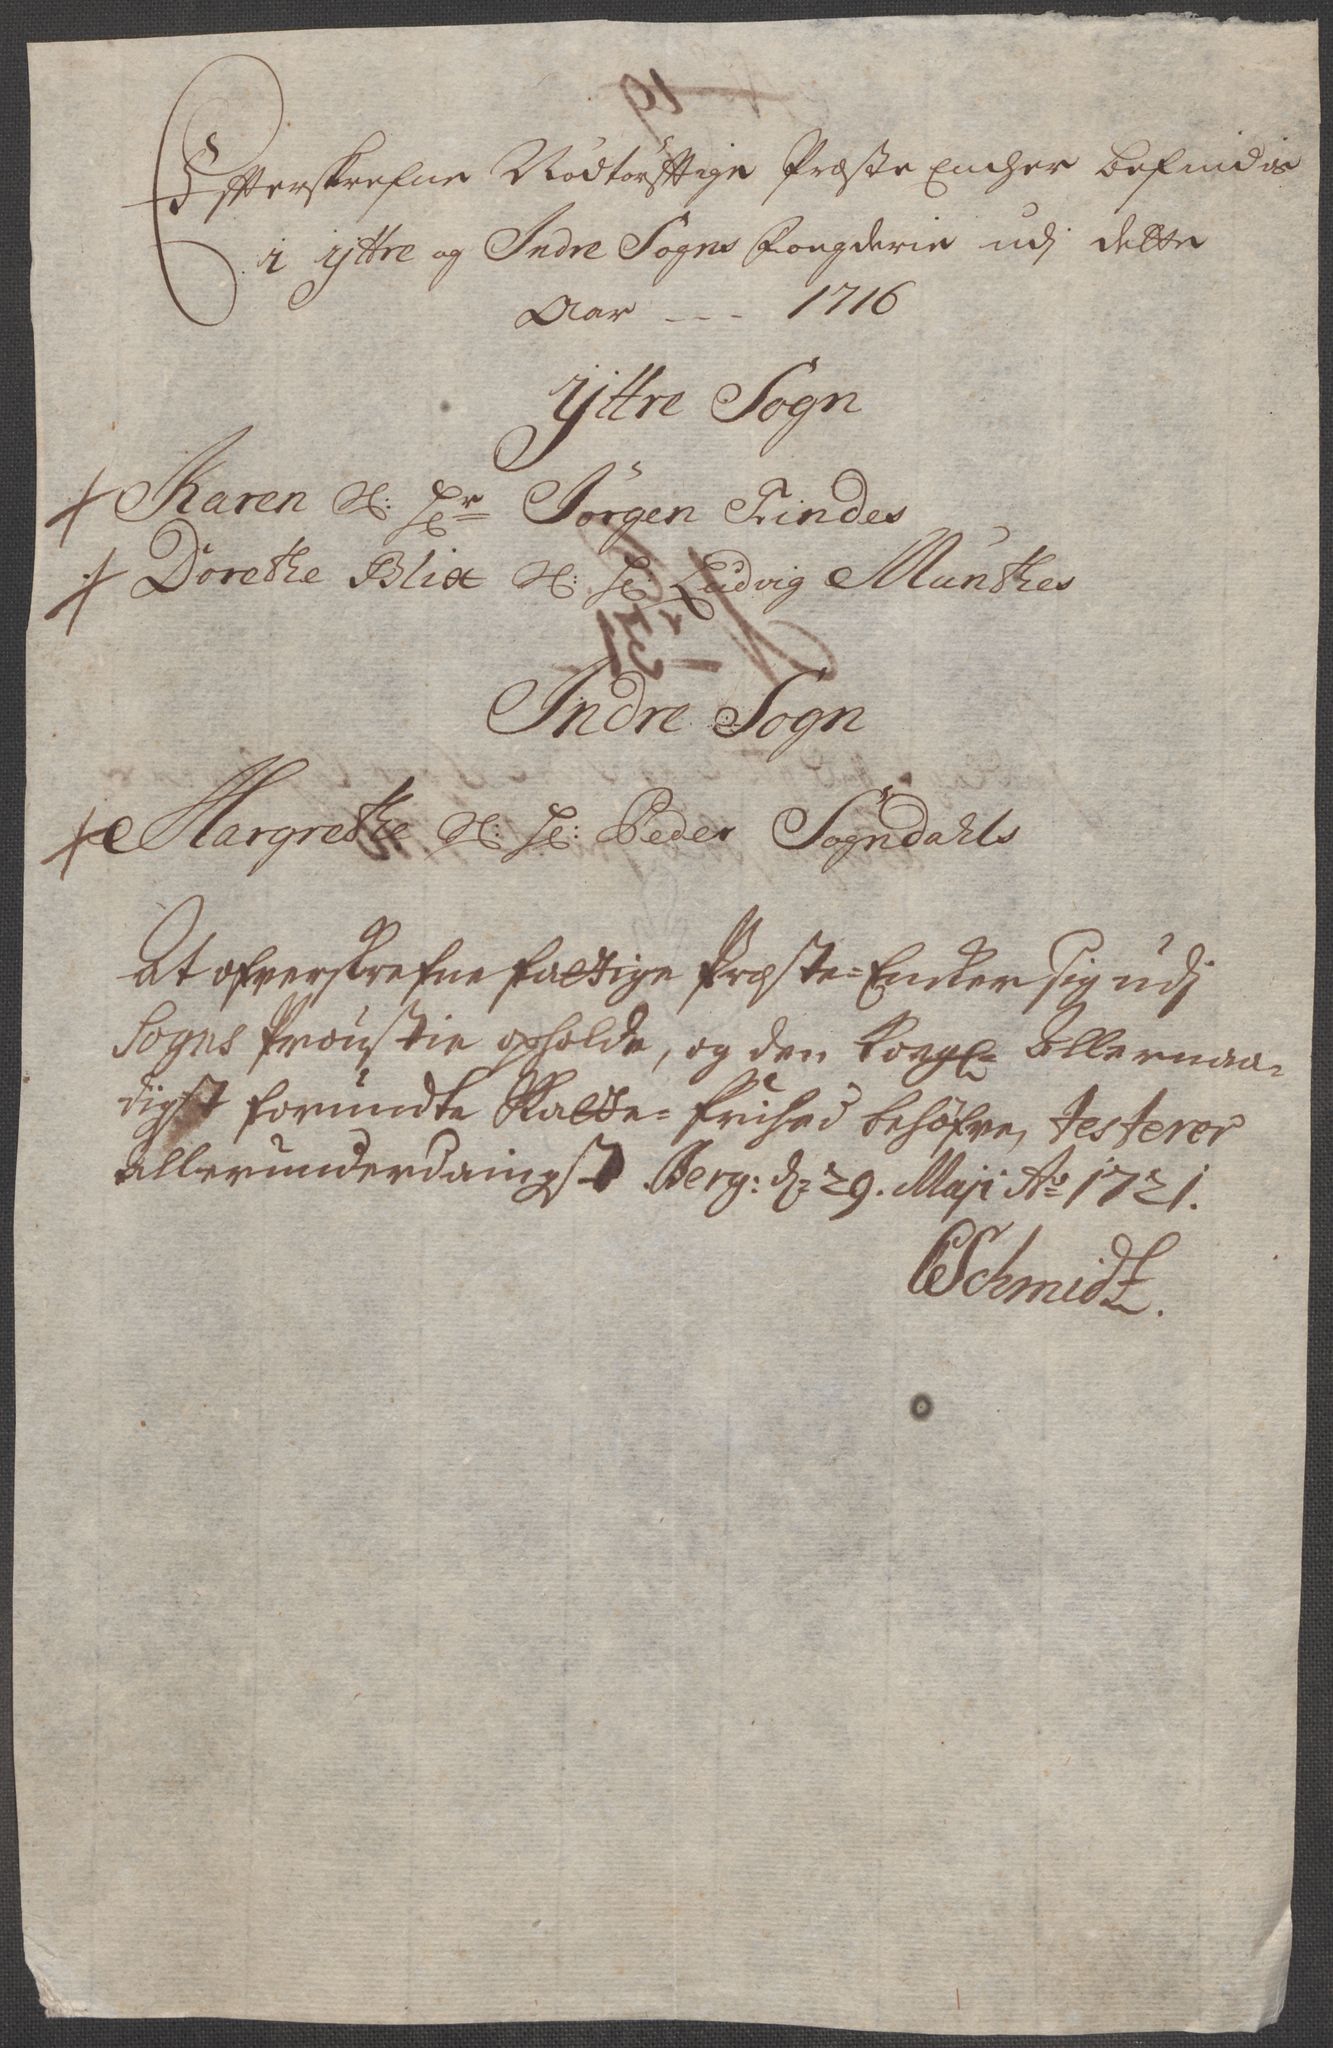 Efterskrefne Nödtörfftige Præste Encher befindis
i ÿttre og Indre Sogns Fougderie udj dette
Aar --- 1716
Ÿttre Sogn
Karen Sl: Hr Jörgen Findes
Dorethe Blix Sl: Hr: Ludvig Munthes
Indre Sogn
Margrethe Sl: Hr: Peder Sogndahls
At ofverskrefne fattige Præste-Encker sig udj
Sogns Proustie opholde, og den Kongl: Allernaa-
digst forundte Skatte-frihed behöfve, testerer
allerunderdaingst Berg: d: 29. Maji Ao 1721.
CSchmidt.